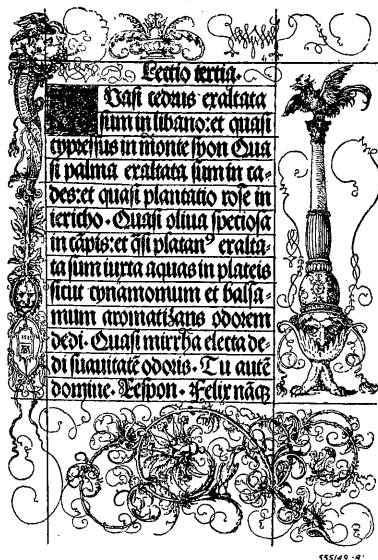 Lectio tertia.
Quasi cedrus exaltata
sum in libano: et quasi
cypressus in monte syon Qua
si palma exaltata sum in ca-
des: et quasi plantatio rose in
iericho. Quasi oliua speciosa
in cāpis: et q̄si platanꝰ exalta-
ta sum iuxta aquas in plateis
sicut cynamomum et balsa-
mum aromatizans odorem
dedi. Quasi mirrha electa de-
di suauitatē odoris. Tu autē
domine. Respon. Felix nāqꝫ
555149 A